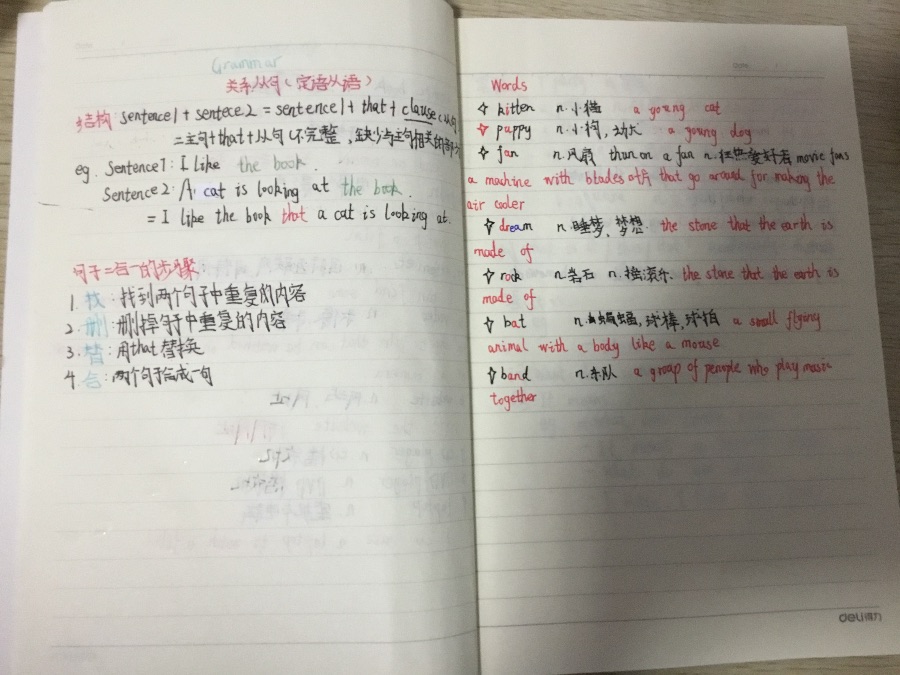 Grammar
关系从句(定语从语)
结构: sentence1 + sentece.2 = sentence1 + that + clause(从句
= 主句+that+从句(不完整,缺少与主句相关的部分
eg. Sentence1: I like the book.
Sentence2: A cat is looking at the book.
= I like the book that a cat is looking at.
句子二合一的步骤:
1. 找:找到两个句子中重复的内容
2. 删:删掉句子中重复的内容
3. 替:用that替换
4. 合:两个句子合成一句
Words
kitten n.小猫 a young cat
puppy n.小狗,幼犬 a young dog
fan n.风扇 a fan n.狂热爱好者 movie fans
a machine with blades that go around for making the
air cooler
dream n.睡梦、梦想 the stone that the earth is
made of
rock n.岩石 n.摇滚乐 the stone that the earth is
made of
bat n.蝙蝠,球棒,球拍 a small flying
animal with a body like a mouse
band n.乐队 a group of people who play music
together
deli得力